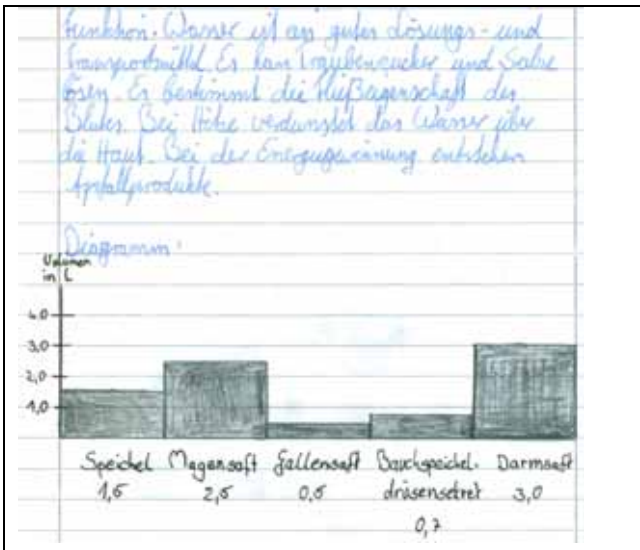 Funktion: Wasser ist ein gutes Lösungs- und
Transportmittel. Es kan Traubenzucker und Salze
lösen. Es bestimmt die Fließeigenschaft des
Blutes. Bei Hitze verdunstet das Wasser über
die Haut. Bei der Energiegewinnung entstehen
Apfallprodukte.
Diagramm:
Volumen
in L
4,0
3,0
2,0
1,0
Speichel Magensaft Gallensaft Bauchspeichel- Darmsaft
1,5 2,5 0,5 drüsensekret 3,0
0,7